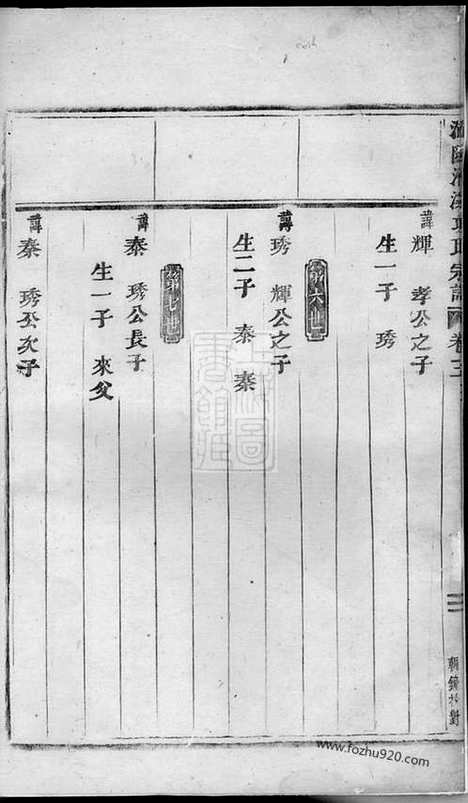 諱輝 孝公之子
生一子 琇
第六世
諱琇 輝公之子
生二子 泰 秦
第七世
諱泰 琇公長子
生一子 來父
諱秦 琇公次子
氏宗譜 卷三
www.fozhu920.com